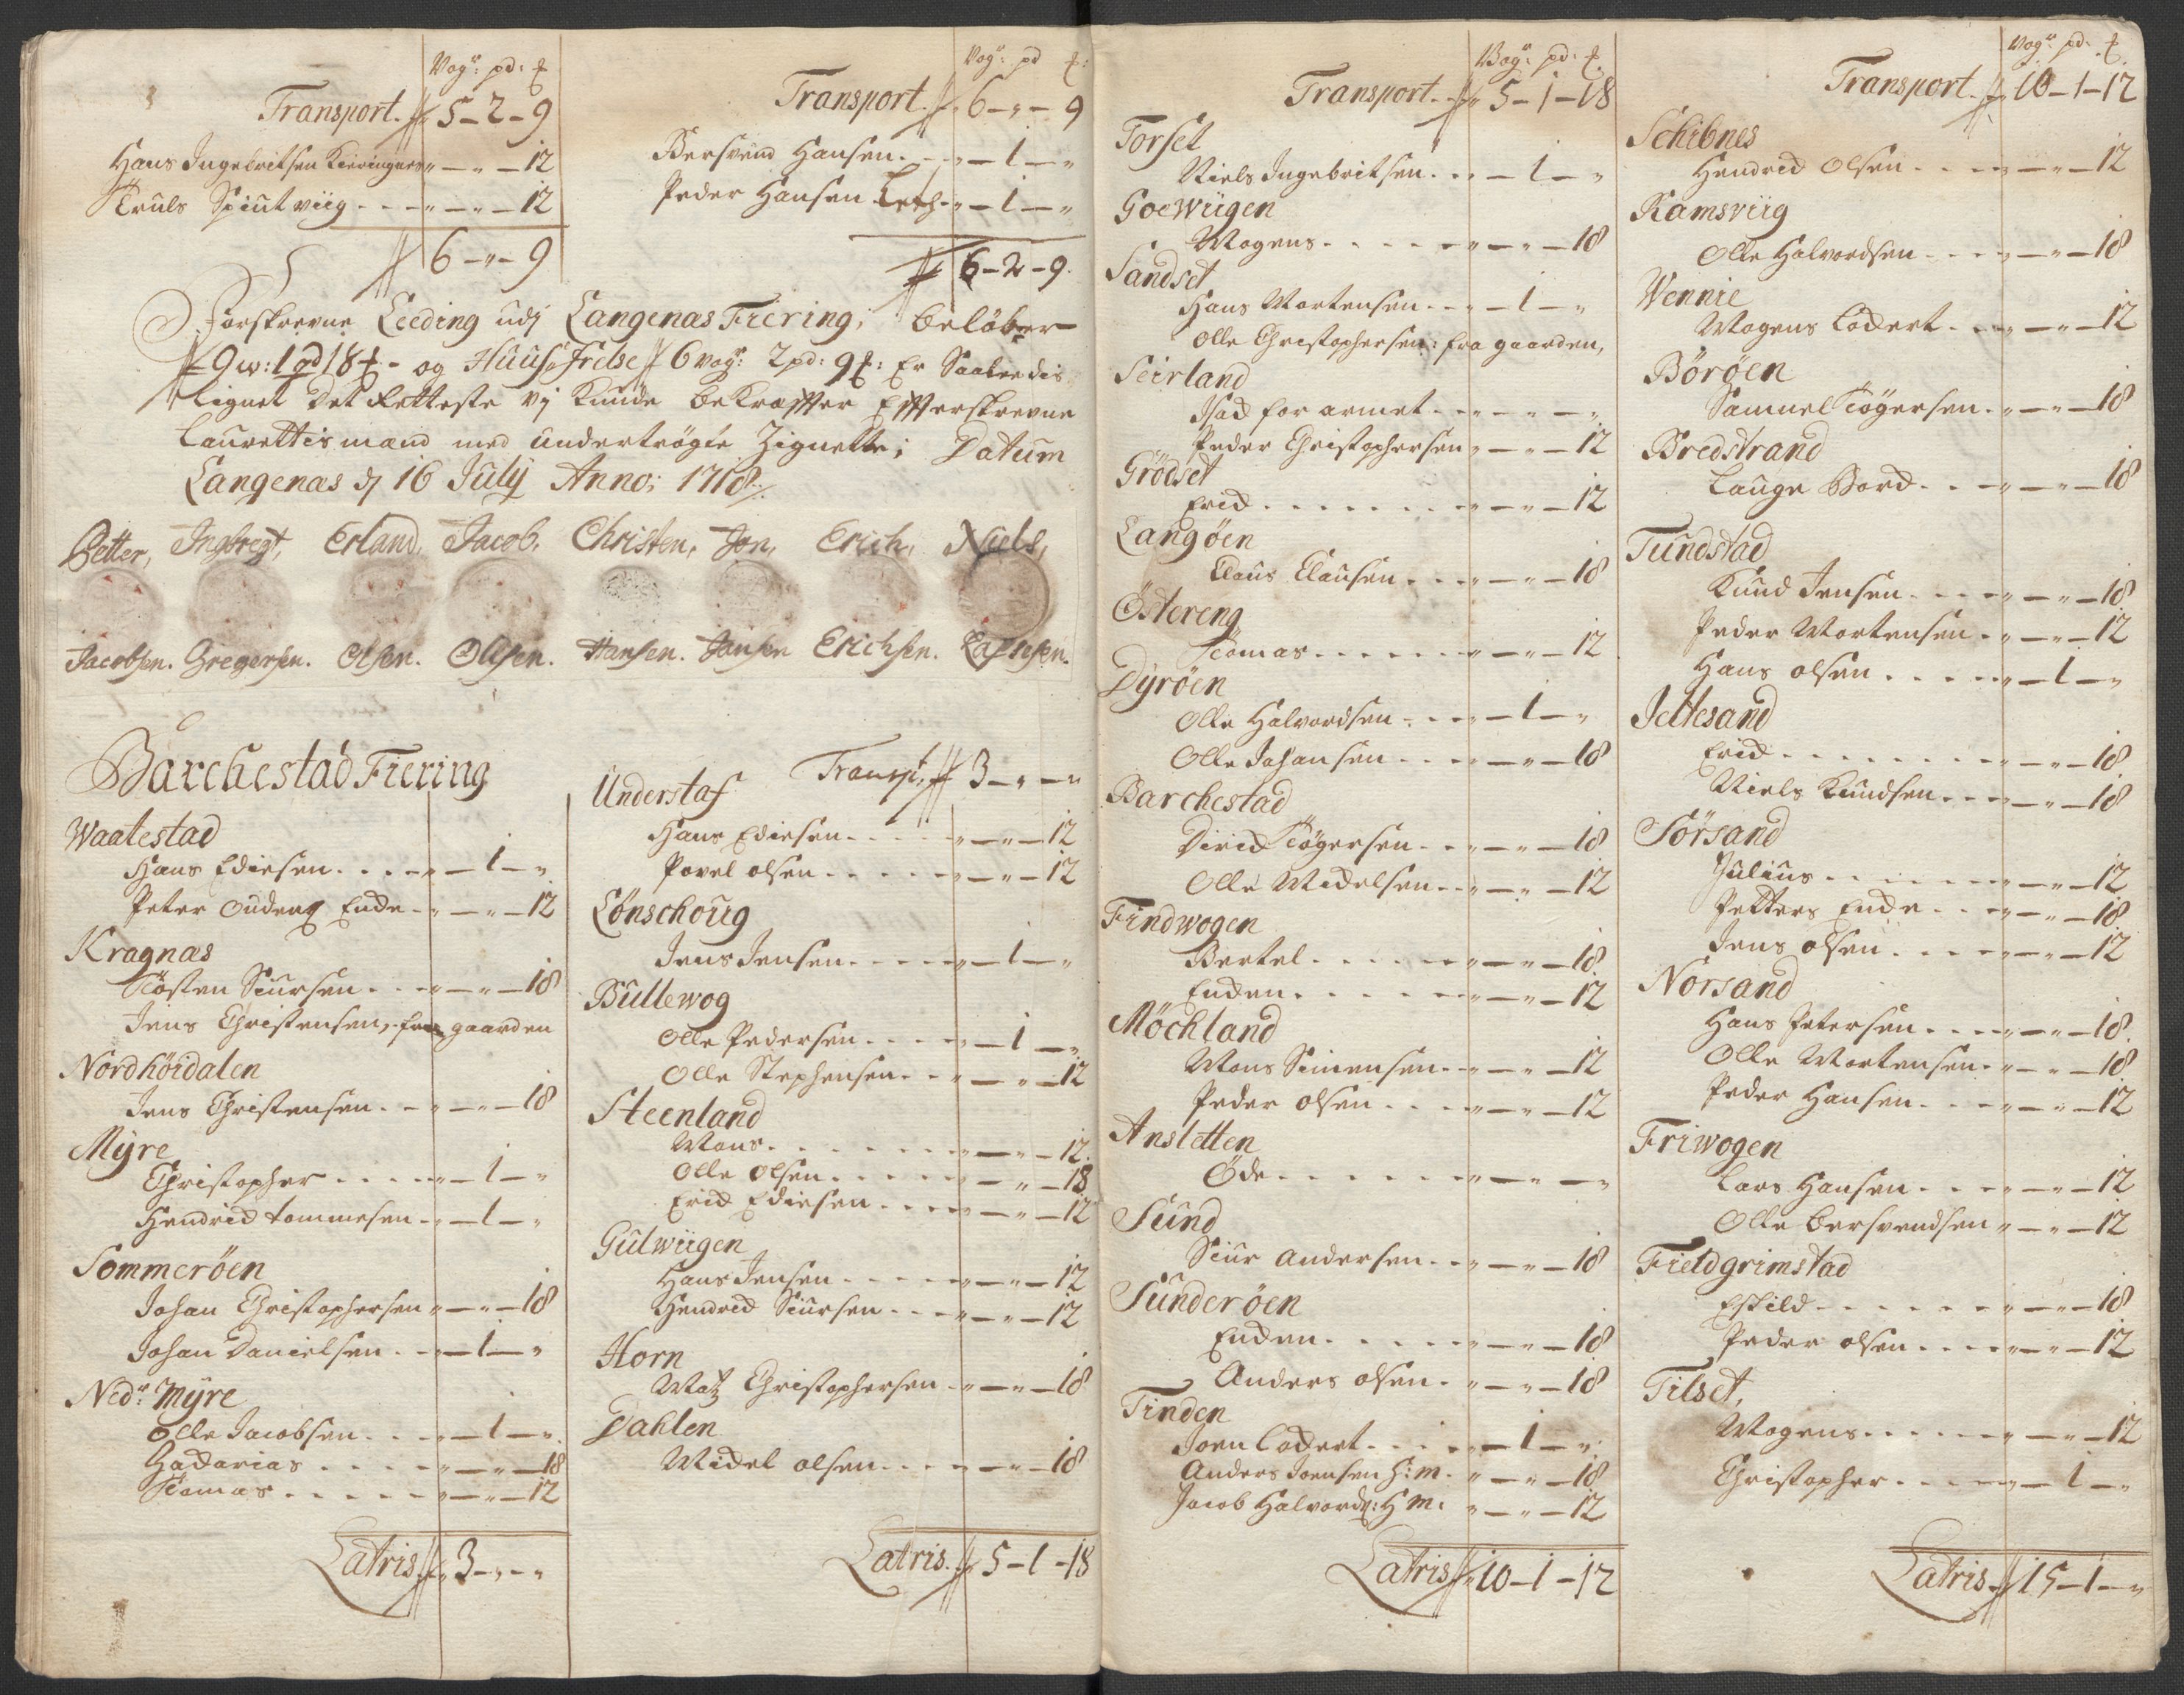 Vog: pd: ℔
Transport. 5 – 2 – 9
Hans Ingebritsen Kieringnes " – " – 12
Truls Spiutviig - - - " – " – 12
6 – " – 9
Vog: pd ℔:
Transport. 6 – " – 9
Bersvend Hansen. - - " – 1 – "
Peder Hansen Leth - " – 1 – "
6 – 2 – 9.
Forskrevne Leeding udj Langenas Fiering, beløber
9 w: 1 pd 18 ℔ - og Huus Frelse 6 vog: 2 pd: 9 ℔: Er Saaledis
lignet det Retteste vj Kunde bekræffter Effterskrevne
Laurettismænd med undertrøgte Zignetter; Datum
Langenas dj 16 July Anno: 1718
Petter, Ingbregt, Erland, Jacob, Christen, Jon, Erich, Niels,
Jacobsen. Gregersen. Olsen. Ollsen. Hansen. Jonsen Erichsen. Lassesen.
Barchestad Fiering
Waatestad
Hans Edissen. . . . " – 1 – "
Peter Ouden Enche - " – " – 12
Kragnæs
Tosten Siursen. . . " – " – 18
Jens Christensen, fra gaarden
Nordhöidalen
Jens Christensen. - " – " – 18
Myre
Christopher . . . . . " – 1 – "
Hendrich Tommesen - " – 1 – "
Sommeröen
Johan Christophersen " – " – 18
Johan Danielsen. - " – 1 – "
Nedr: Myre
Olle Jacobsen. . . " – 1 – "
Zacharias . . . . " – " – 18
Tomas . . . . . . " – " – 12
Latris 3 – " – "
Transpt. 3 – " – "
Understaf
Hans Edissen. . . . " – " – 12
Povel olsen . . . . . " – " – 12
Lönschoug
Jens Jensen. . . . " – 1 – "
Bullewog
Olle Pedersen. . . . " – 1 – "
Olle Stephensen. . " – " – 12
Steenland
Mons. . . . . . . . " – " – 12.
Olle Olsen. . . . . " – " – 18
Erich Edissen . . . " – " – 12
Gulwiigen
Hans Jensen. . . . . " – " – 12
Hendrich Siursen . . " – " – 12
Horn
Matz Christophersen - " – " – 18
Dahlen
Michel olsen. . . . " – " – 18
Latris. 5 – 1 – 18
Vog: pd: ℔.
Transport. 5 – 1 – 18
Torset
Niels Ingebritsen. . " – 1 – "
Goewiigen
Mogens. . . . . . " – " – 18
Sandset
Hans Mortensen. . " – 1 – "
Olle Christophersen: fra gaarden,
Seirland
Isach for armet. . " – " – "
Peder Christophersen " – " – 12
Grödset
Erich. . . . . . . " – " – 12
Langöen
Claus Clausen. . . " – " – 18
Östereng
Tomas. . . . . . " – " – 12
Dyröen
Olle Halvordsen. . " – 1 – "
Olle Johansen. . . " – " – 18
Barchestad
Dirich Tögersen. . " – " – 18
Olle Michelsen. . " – " – 12
Findwogen
Bertel. . . . . . " – " – 18.
Enchen. . . . . . " – " – 12
Möchland
Mons Simensen. . " – " – 12
Peder olsen . . . . " – " – 12
Ansletten
Öde. . . . . . . . " – " – "
Sund
Siur Andersen. . " – " – 18
Sunderöen
Enchen. . . . . . " – " – 18
Anders olsen. . . " – " – 18
Tinden
Joen Codert. . . . " – 1 – "
Anders Joensen H: m. " – " – 18
Jacob Halvords: H m: " – " – 12
Latris 10 – 1 – 12
Vog: pd: ℔.
Transport. 10 – 1 – 12
Schibnes
Hendrich Olsen . . . " – " – 12
Ramsviig
Olle Halvordsen . . . " – " – 18
Wennie
Mogens Codert. . . " – " – 12
Börøen
Samuel Tögersen. " – " – 18
Bredstrand
Lauge Bord. . . " – " – 18
Tundstad
Knud Jensen. . . . " – " – 18
Peder Mortensen . " – " – 12
Hans olsen . . . . " – 1 – "
Jeltesand
Erich. . . . . . . . " – " – 18
Niels Knudsen. . . " – " – 18
Sörsand
Julius . . . . . . " – " – 12
Petters Enche . . . " – " – 18
Jens olsen . . . . " – " – 12
Norsand
Hans Petersen. . . . " – " – 18.
Olle Mortensen. . " – " – 18
Peder Hansen. . . " – " – 12
Friwogen
Lars Hansen. . . . " – " – 12
Olle Bersvendsen " – " – 12
Fieldgrimstad
Eskild. . . . . . . " – " – 18
Peder olsen. . . . . " – " – 12
Tilset,
Mogens. . . . . . " – " – 12
Christopher. . . . . " – 1 – "
Latris. 15 – 1 – "